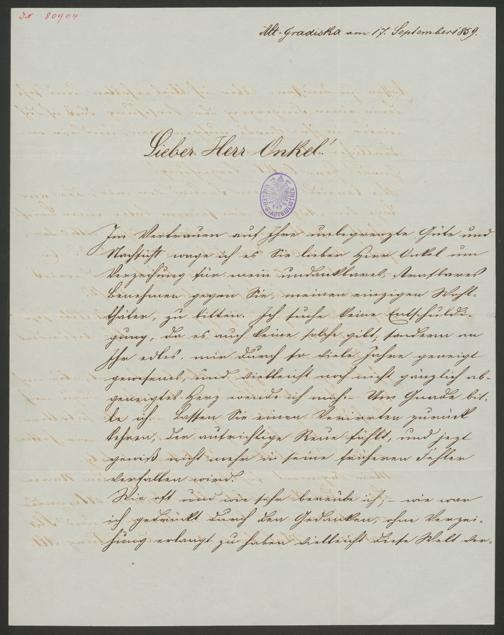 IN 80904
Alt-Gradiska am 17. September 1859.
Lieber Herr Onkel!
Im Vertrauen auf Ihre unbegrenzte Güte und
Nachsicht wage ich es Sie lieber Herr Onkel um
Verzeihung für mein undankbares,
Benehmen gegen Sie, meinen einzigen Wohl-
thäter, zu bitten. Ich suche keine Entschuldi-
gung, da es auch keine solche gibt, sondern an
Ihr edles, mir durch so viele Jahre geneigt
gewesenes, und vielleicht noch nicht gänzlich ab-
geneigtes Herz wende ich mich. Um Gnade bit-
te ich. Lassen Sie einen Verirrten zurück
kehren, der aufrichtige Reue fühlt, und jetzt
gewiß nicht mehr in seine früheren Fehler
verfallen wird.
Wie oft und wie sehr bereute ich; wie war
ich gedrückt durch den Gedanken, ohne Verzei-
hung erlangt zu haben vielleicht diese Welt ver-